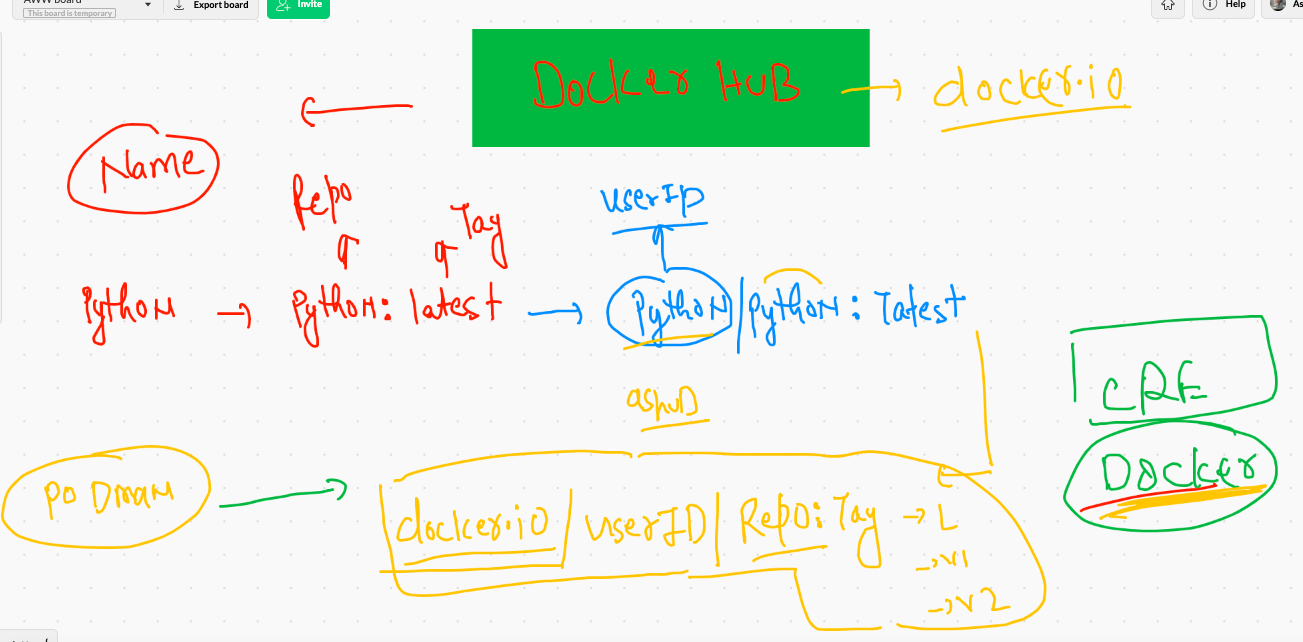 AWW board
This board is temporary
Export board
Invite
Help
As
Docker HUB → docker.io
Name
Repo
Tag
userID
Python → Python: latest → Python/Python: latest
ashuD
CRE
Docker
PODman
docker.io/userID/Repo:Tag → L
→ v1
→ v2